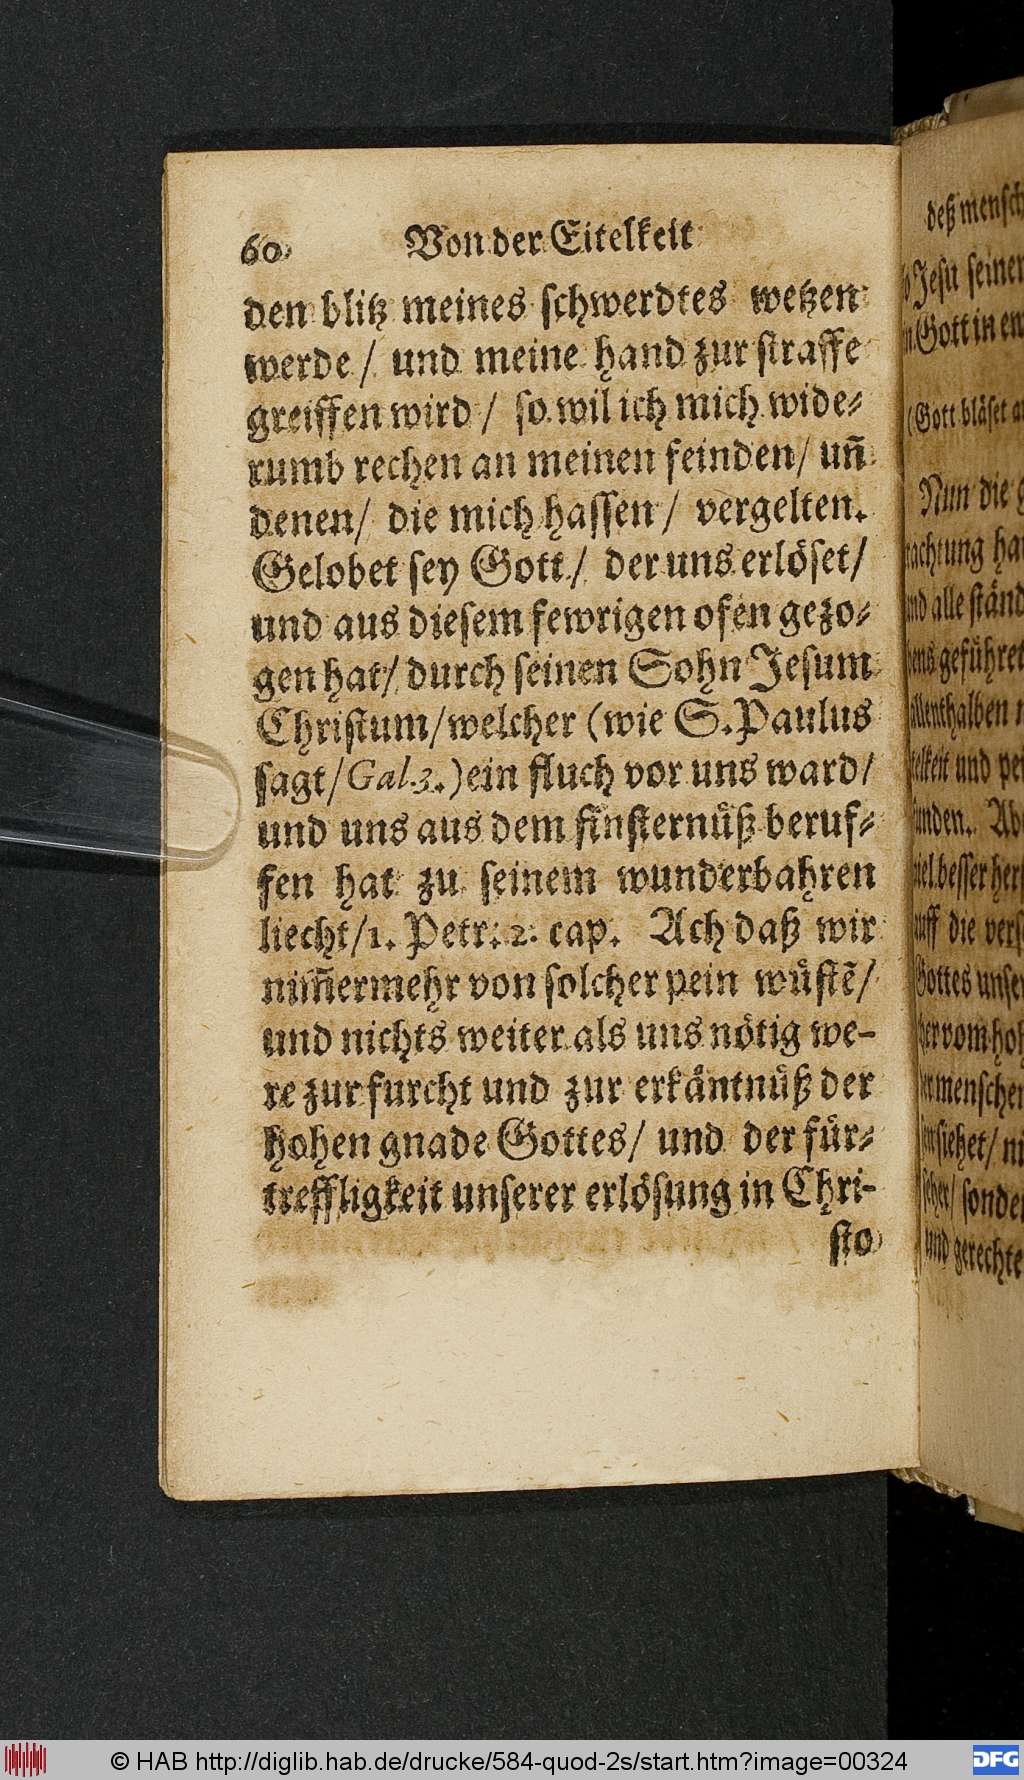 60 Von der Eitelkeit
den blitz meines schwerdtes wetzen
werde / und meine hand zur straffe
greiffen wird / so wil ich mich wide⸗
rumb rechen an meinen feinden / uñ
denen / die mich hassen / vergelten.
Gelobet sey Gott / der uns erlöset /
und aus diesem fewrigen ofen gezo⸗
gen hat / durch seinen Sohn Jesum
Christum / welcher (wie S. Paulus
sagt / Gal. 3.) ein fluch vor uns ward /
und uns aus dem finsternüß beruf⸗
fen hat zu seinem wunderbahren
liecht / 1. Petr. 2. cap. Ach daß wir
nim̃ermehr von solcher pein wüstẽ /
und nichts weiter als uns nötig we-
re zur furcht und zur erkäntnüß der
hohen gnade Gottes / und der für⸗
treffligkeit unserer erlösung in Chri-
sto
deß mensch
Jesu seiner
Gott in
(Gott bläset
Nun die
und alle ständ
geführet
und
besser
auff die
Gottes unser
vom
menschen
siehet /
sonder
und gerechte
© HAB http://diglib.hab.de/drucke/584-quod-2s/start.htm?image=00324
DFG